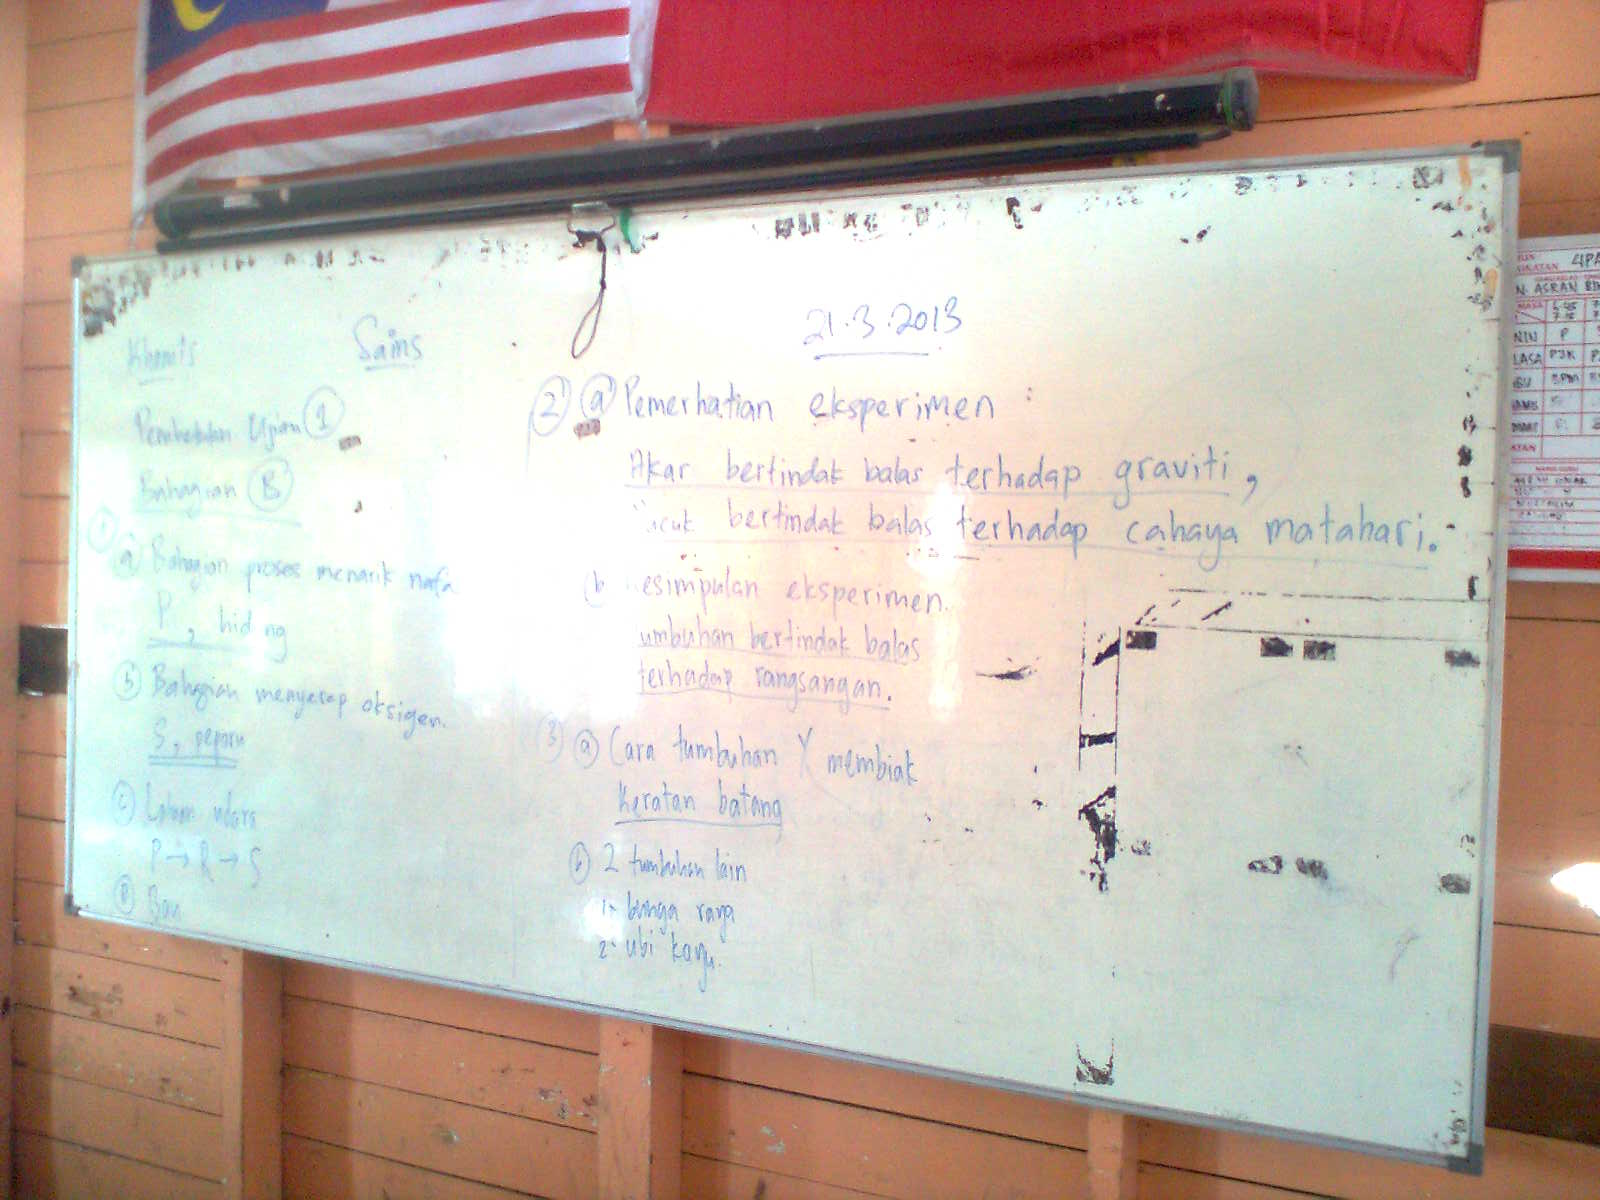 Khamis Sains 21.3.2013
Pembetulan Ujian 1
Bahagian B
1
a Bahagian proses menarik nafa
P, hid ng
b Bahagian menyerap oksigen.
S, peparu
c Laluan udara
P → R → S
2 a Pemerhatian eksperimen :
Akar bertindak balas terhadap graviti,
ucuk bertindak balas terhadap cahaya matahari.
b esimpulan eksperimen.
umbuhan bertindak balas
terhadap rangsangan.
3 a Cara tumbuhan X membiak
Keratan batang
b 2 tumbuhan lain
1- bunga raya
2- ubi kayu.
N. ASRAN
NIN P
LASA PJK